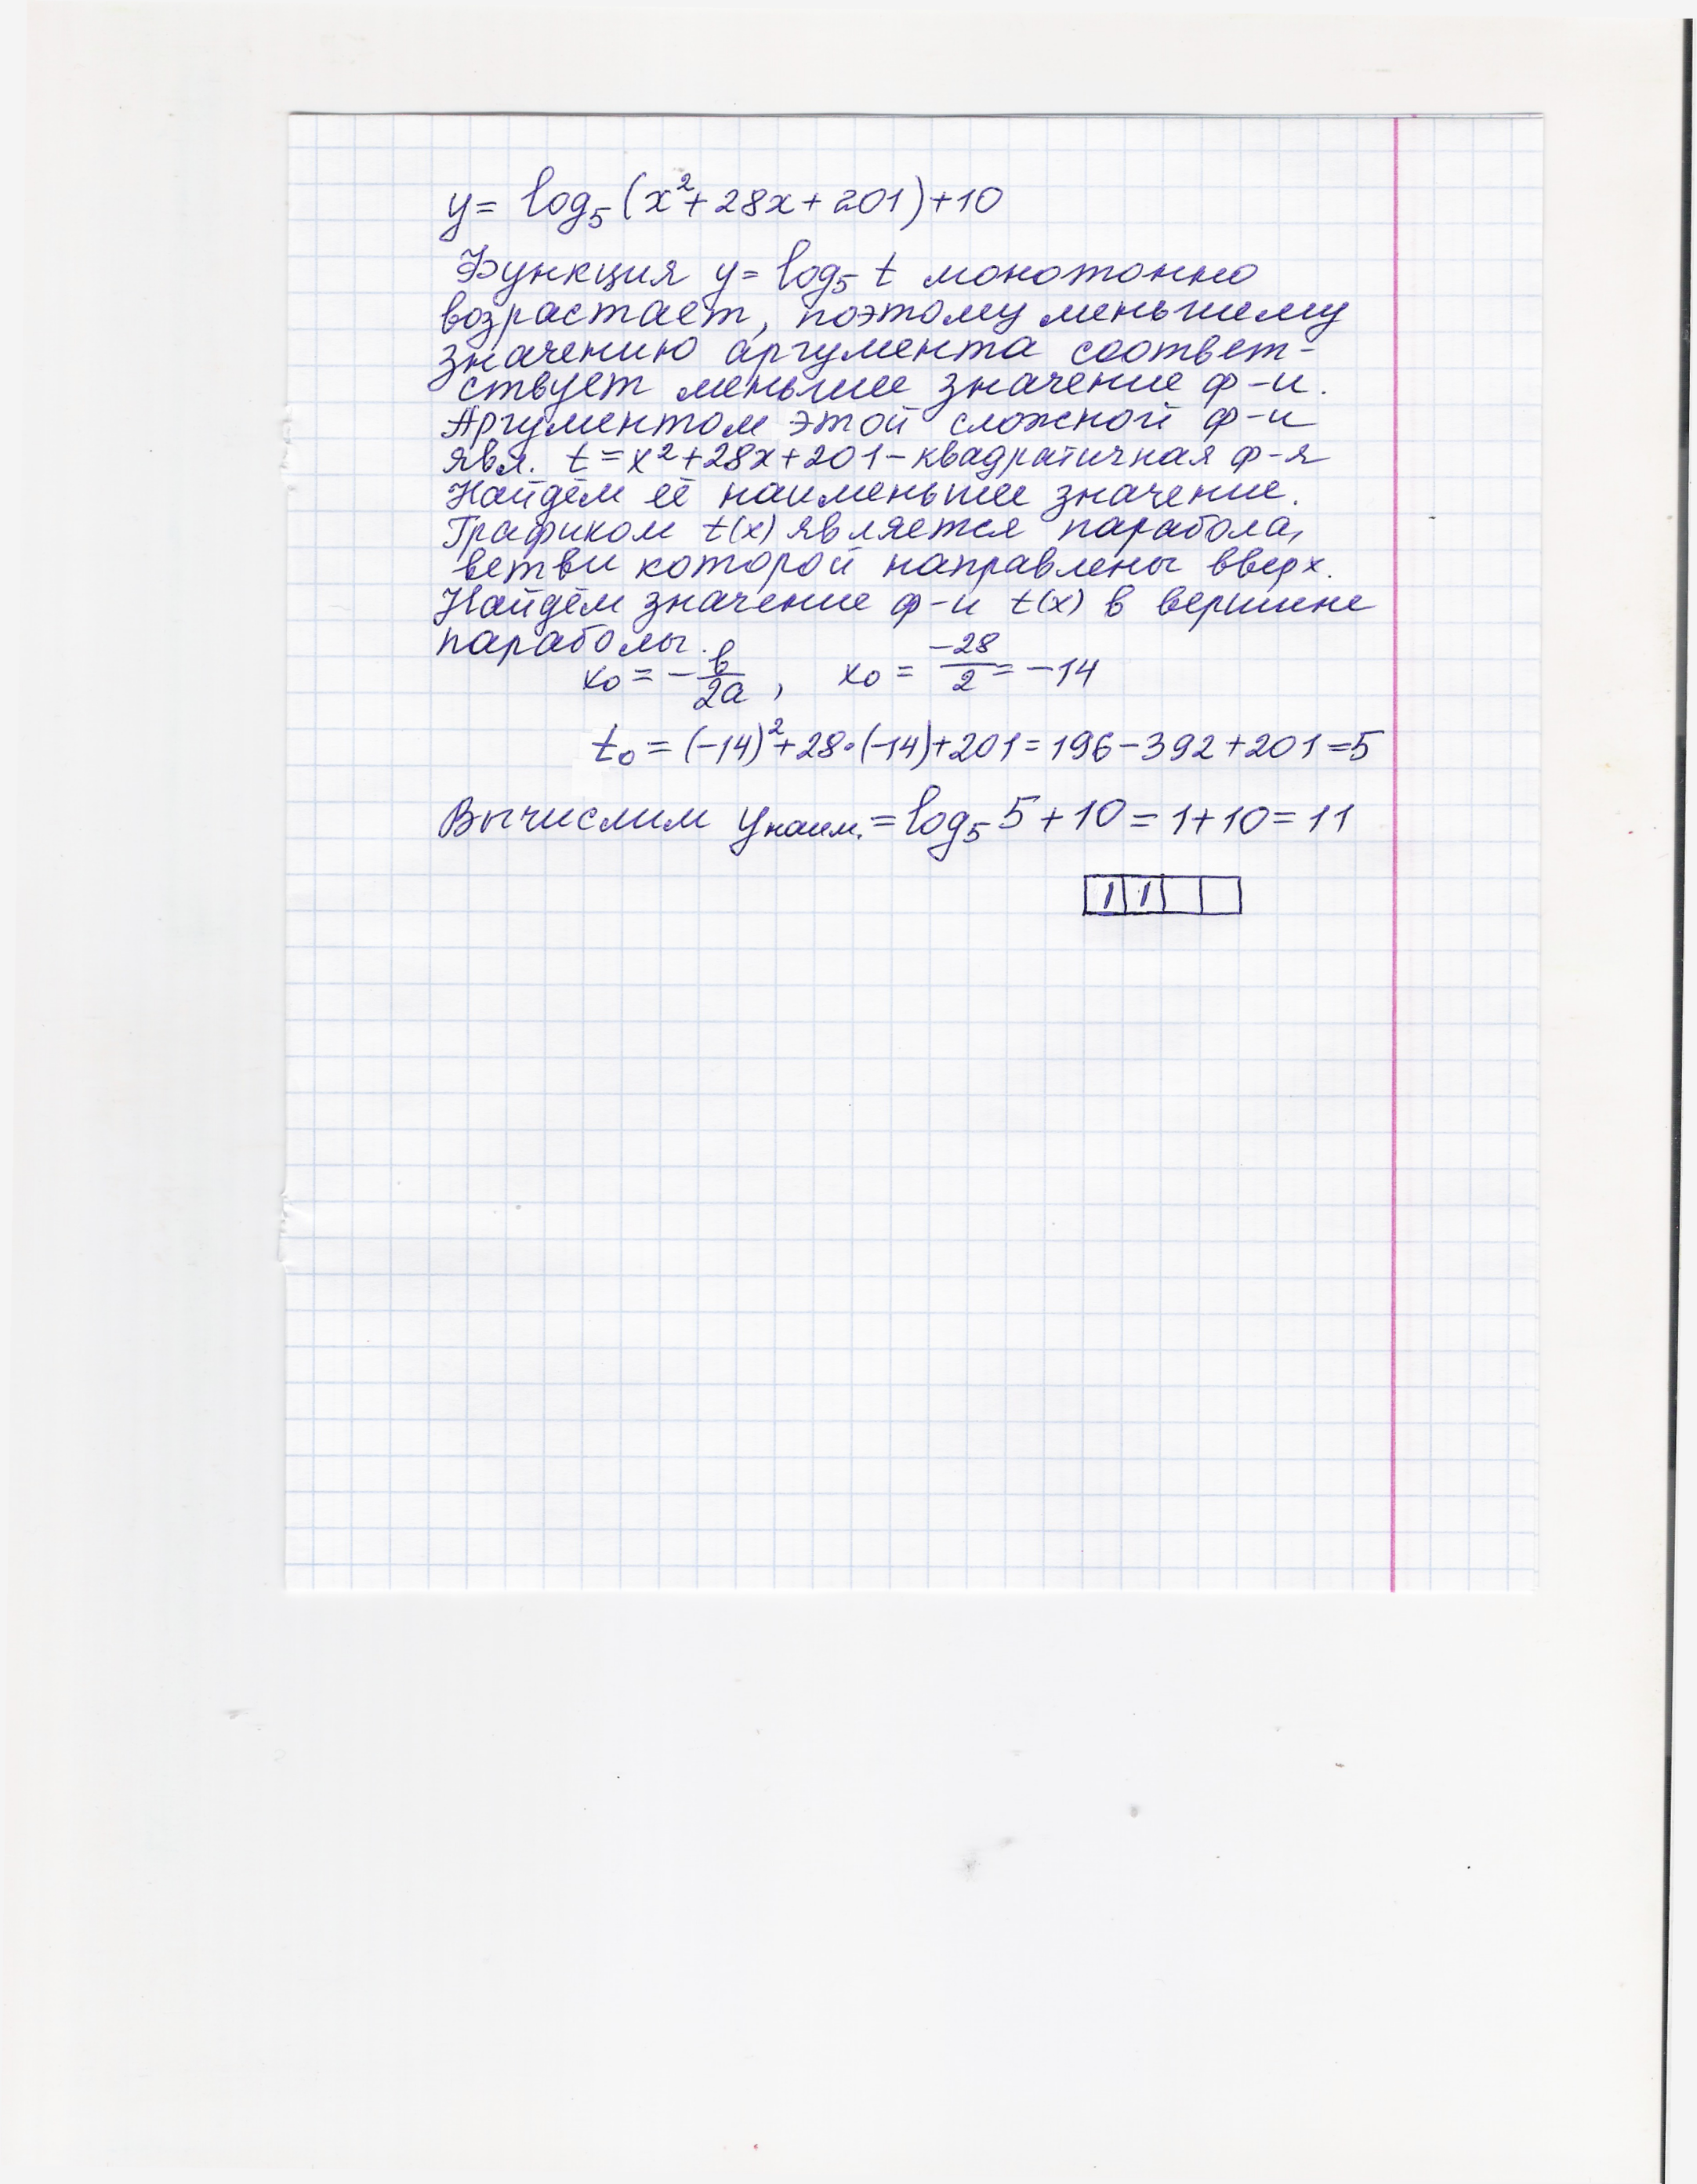 y = log₅(x²+28x+201)+10
Функция y = log₅ t монотонно
возрастает, поэтому меньшему
значению аргумента соответ-
ствует меньшее значение ф-и.
Аргументом этой сложной ф-и
явл. t = x²+28x+201 - квадратичная ф-я
Найдём её наименьшее значение.
Графиком t(x) является парабола,
ветви которой направлены вверх.
Найдём значение ф-и t(x) в вершине
параболы.
x₀ = -b/2a, x₀ = -28/2 = -14
t₀ = (-14)²+28·(-14)+201=196-392+201=5
Вычислим yнаим. = log₅ 5+10=1+10=11
11